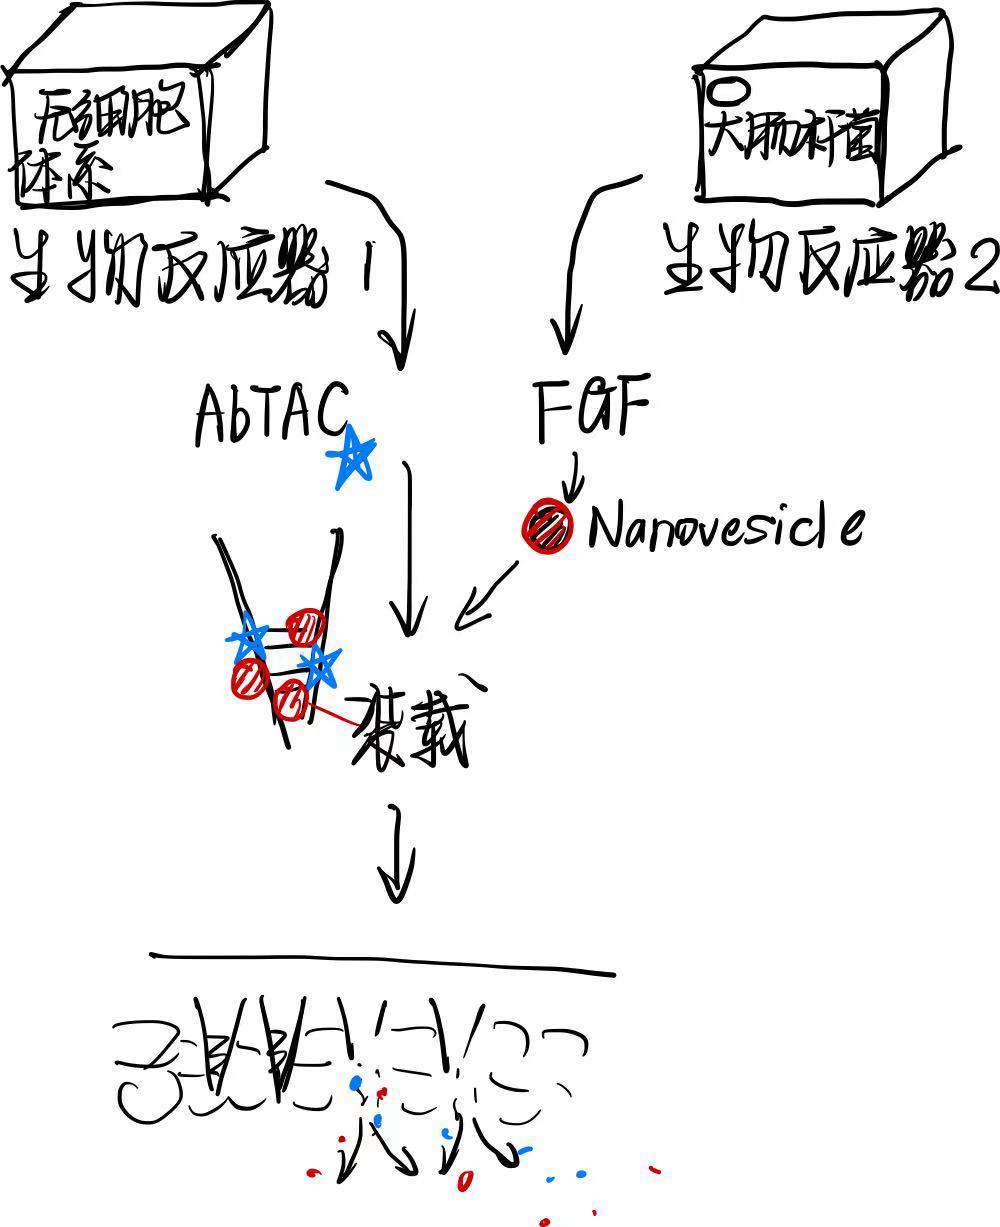 无细胞
体系
大肠杆菌
生物反应器1
生物反应器2
AbTAC
FGF
Nanovesicle
装载